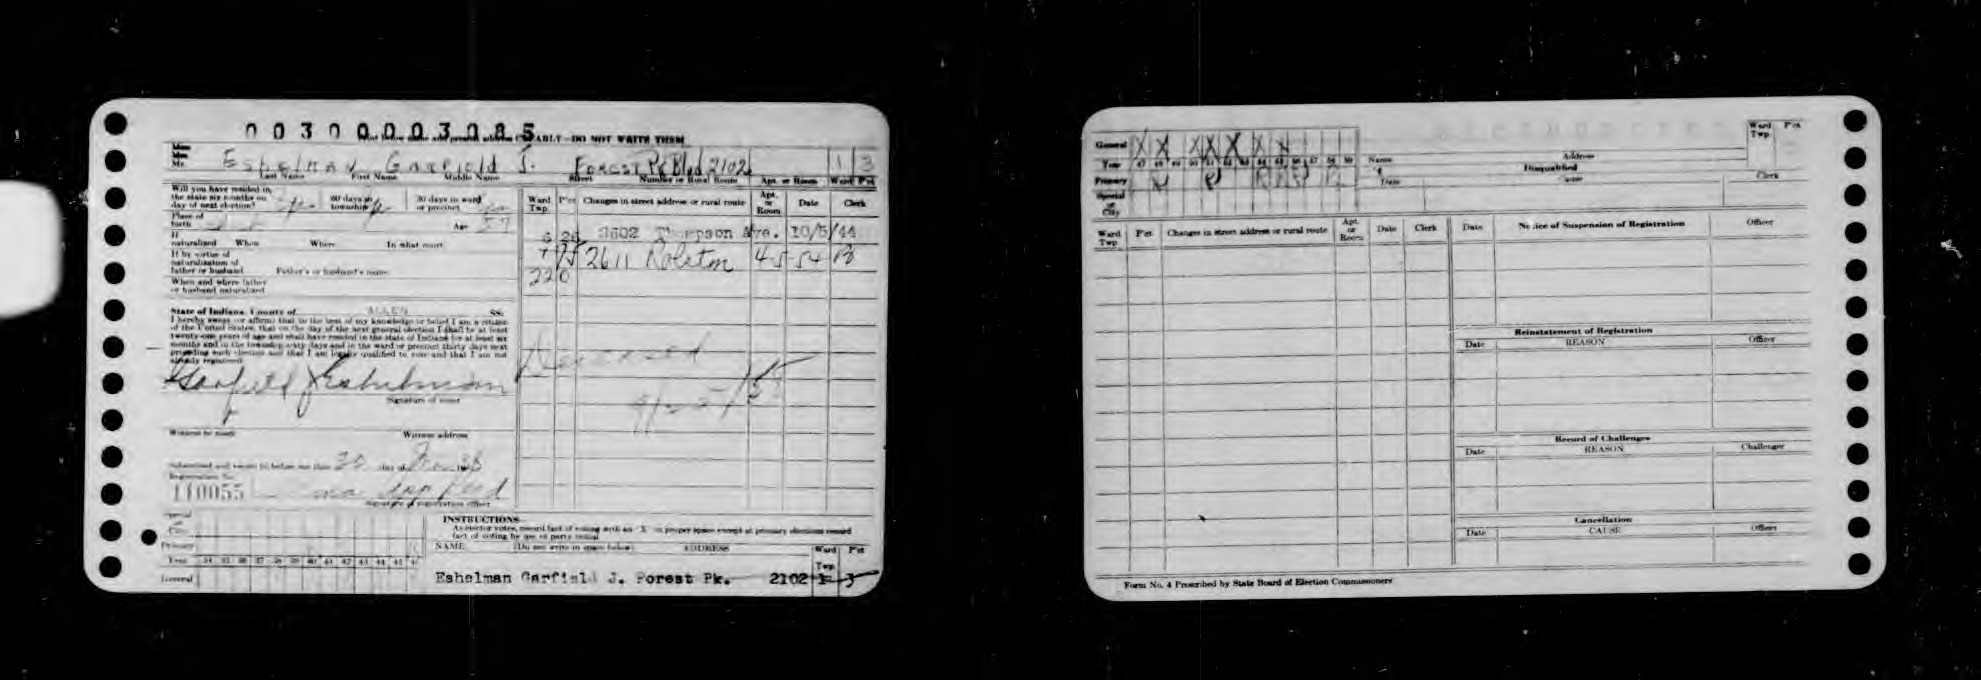 00300003085
ABLY—DO NOT WRITE THEM
Miss
Mrs.
Mr. ESHELMAN GARFIELD J. FOREST PK Blvd 2102 1 3
Last Name First Name Middle Name Street Number or Rural Route Apt. or Room Ward Pct
Will you have resided in the state six months on day of next election? 60 days in township 30 days in ward or precinct
Place of birth Age 57
If naturalized When Where In what court
If by virtue of naturalization of father or husband Father's or husband's name
When and where father or husband naturalized
State of Indiana, County of ALLEN SS:
I hereby swear or affirm that to the best of my knowledge or belief I am a citizen
of the United States, that on the day of the next general election I shall be at least
twenty-one years of age and shall have resided in the state of Indiana for at least six
months and in the township sixty days and in the ward or precinct thirty days next
preceding such election and that I am legally qualified to vote and that I am not
already registered.
Garfield J Eshelman
Signature of voter
Witness to mark Witness address
Subscribed and sworn to before me this 20 day of
Registration No.
110055
Signature of registration officer
Ward Twp. P'ct Changes in street address or rural route Apt. or Room Date Clerk
6 26 3602 Thompson Ave. 10/5/44
7 15 2611 4-5-54
220
Deceased
Special
City
Primary
Year 34 35 36 37 38 39 40 41 42 43 44 45 46
General
INSTRUCTIONS
As elector votes, record fact of voting with an "X" in proper space except at primary elections record
fact of voting by use of party initial
NAME (Do not write in space below) ADDRESS Ward Twp. P'ct
Eshelman Garfield J. Forest Pk. 2102 1 3
General X X X X X X X
Year 47 48 49 50 51 52 53 54 55 56 57 58 59
Primary
Special or City
Name Address Ward Twp. P'ct
Disqualified
Date Cause Clerk
Ward Twp P'ct Changes in street address or rural route Apt. or Room Date Clerk
Date Notice of Suspension of Registration Officer
Reinstatement of Registration
Date REASON Officer
Record of Challenges
Date REASON Challenger
Cancellation
Date CAUSE Officer
Form No. 4 Prescribed by State Board of Election Commissioners